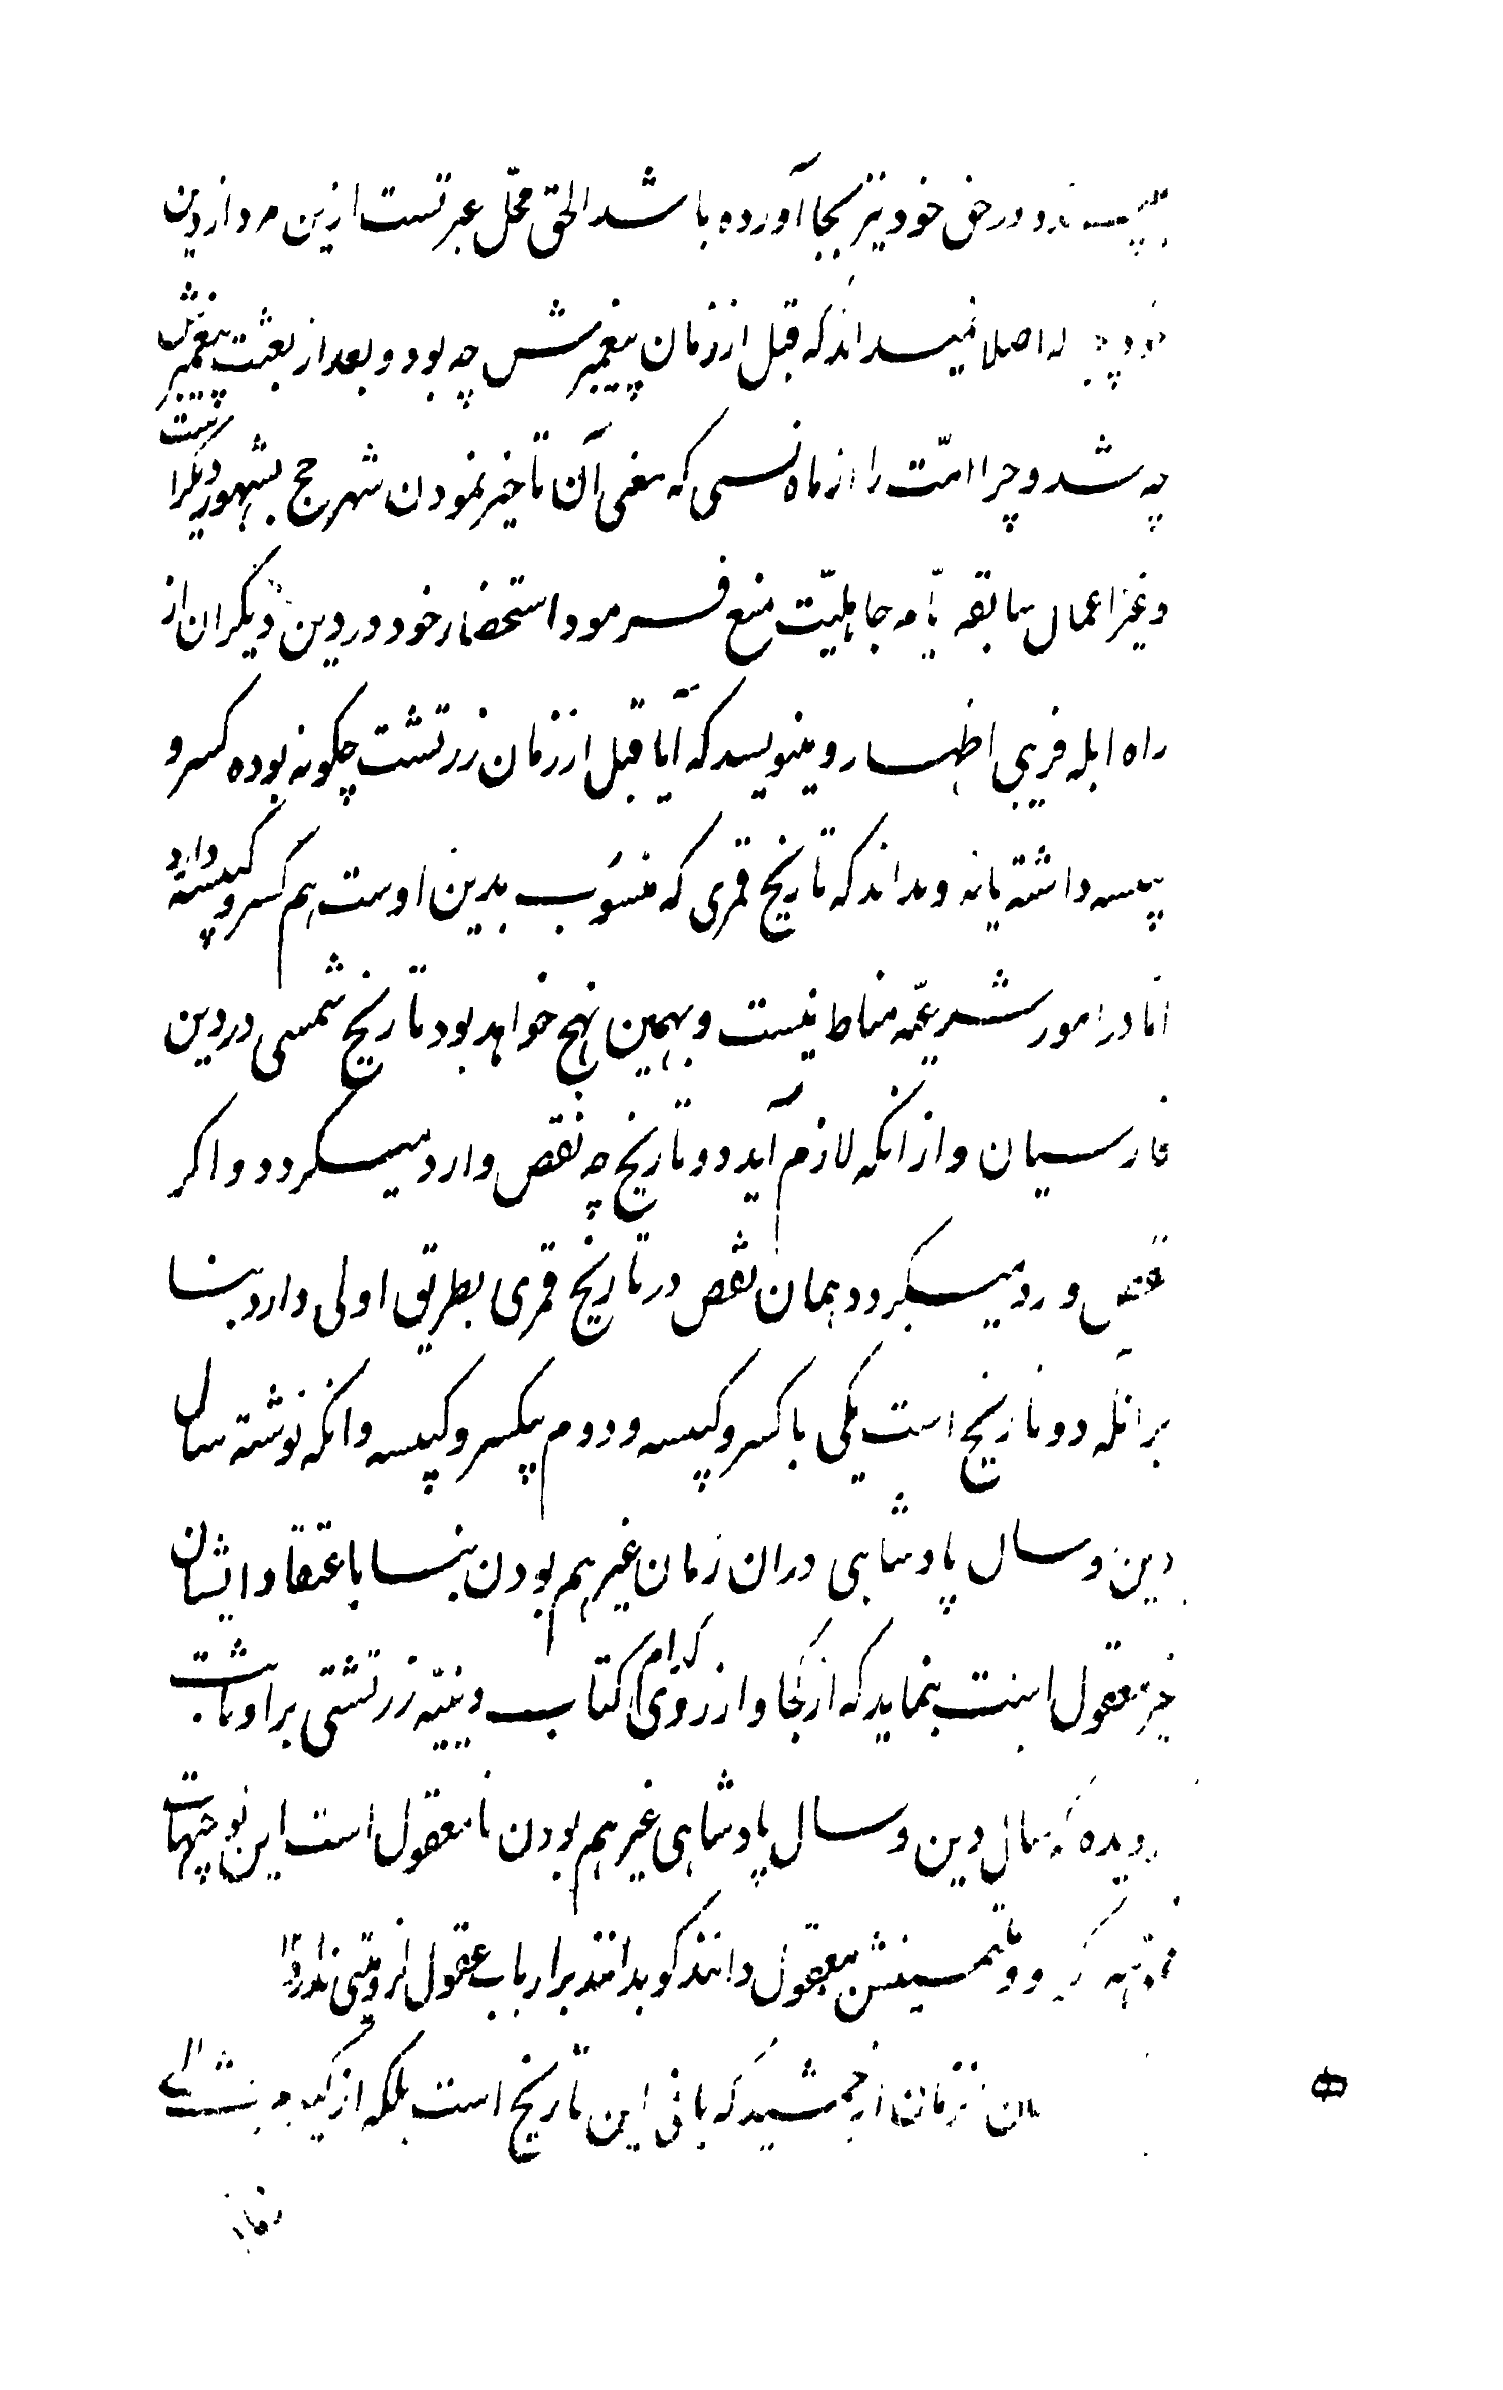 در حق خود نیز بجا آورده باشد الحق محل عبرتست ازین مرد از دین
خود چه اصلا نمیداند که قبل از زمان پیغمبرش چه بود و بعد از بعثت پیغمبرش
چه شد و چرا امّت را از ماه نسی که معنی آن تاخیر نمودن شهر حج بشهور دیگر است
و غیر اعمال سابقه جاهلیّت منع فرمود استحضار خود در دین دیگران از
راه ابله فریبی اظهار و مینویسد که آیا قبل از زمان زرتشت چگونه بوده کسر و
پیسه داشته یا نه و نداند که تاریخ قمری که منسوب بدین اوست هم کسر و کپیسه دارد
امّا در امور شرعیّه مناط نیست و بهمین نهج خواهد بود تاریخ شمسی در دین
فارسیان و از انکه لازم آید دو تاریخ چه نقص وارد میگردد و اگر
نقص ورد میگردد همان نقص در تاریخ قمری بطریق اولی دارد بنا
بر آنکه دو تاریخ است یکی با کسر و کپیسه و دوم بیکسر و کپیسه و انکه نوشته سال
دین و سال پادشاهی دران زمان غیر هم بودن بنا باعتقاد ایشان
غیر معقول است بنماید که از کجا و از روی کدام کتاب دینیّه زرتشتی بر او ثابت
دیده که سال دین و سال پادشاهی غیر هم بودن نامعقول است این نوجیهات
معقول دانند کو بدانند بر ارباب عقول اثر وقتی ندارد
زمان از جمشید که بانی این تاریخ است بلکه از